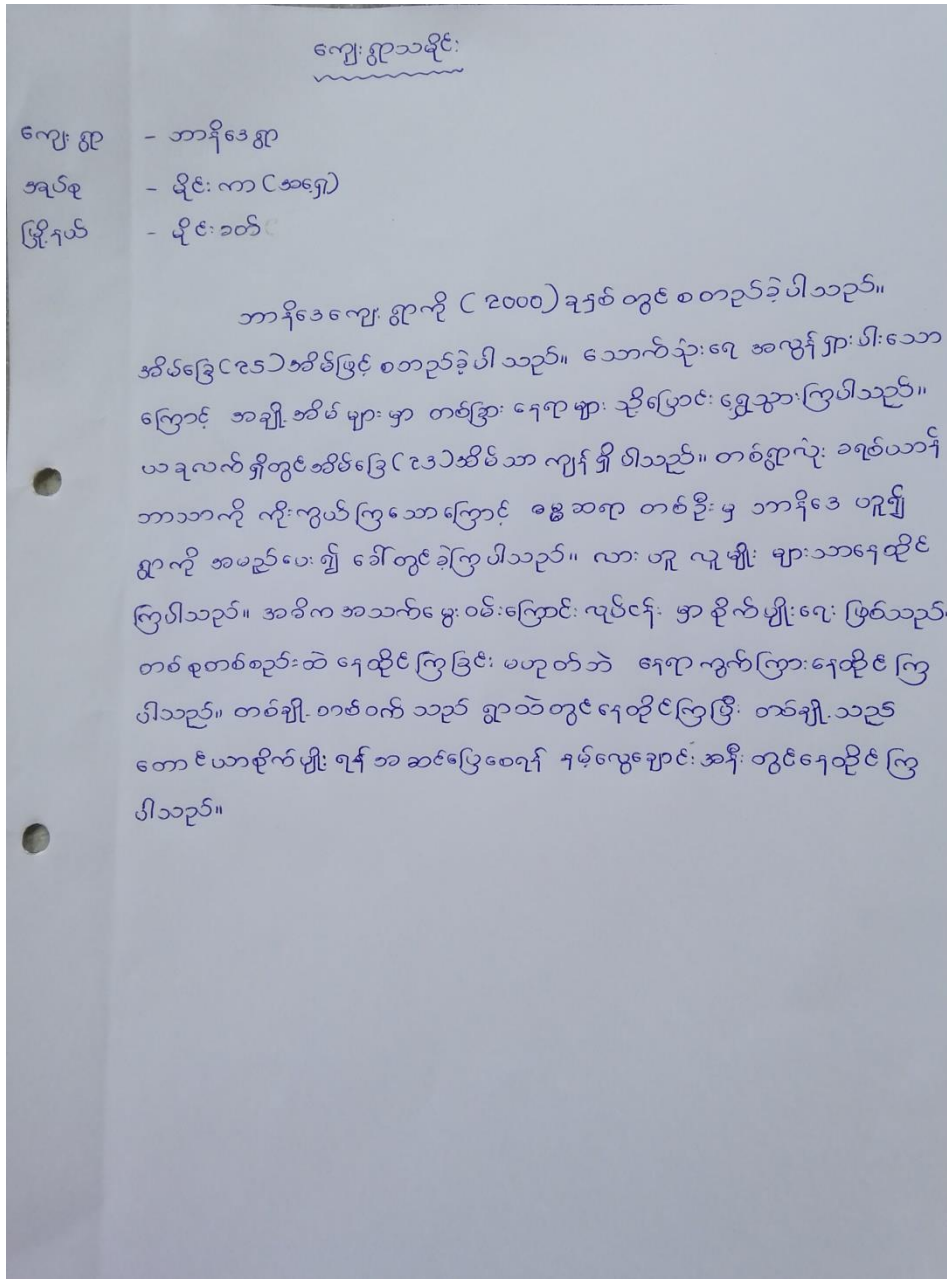 ကျေးရွာသမိုင်း
ကျေးရွာ - ဘာနိဒေရွာ
အုပ်စု - မိုင်းကာ (အရှေ့)
မြို့နယ် - မိုင်းခတ်
ဘာနိဒေကျေးရွာကို (2000) ခုနှစ်တွင် စတည်ခဲ့ပါသည်။
အိမ်ခြေ (၃၅) အိမ်ဖြင့် စတည်ခဲ့ပါသည်။ သောက်သုံးရေ အလွန်ရှားပါးသော
ကြောင့် အချို့အိမ်များမှာ တစ်ခြားနေရာများသို့ပြောင်းရွှေ့သွားကြပါသည်။
ယခုလက်ရှိတွင်အိမ်ခြေ (၁၃) အိမ်သာ ကျန်ရှိပါသည်။ တစ်ရွာလုံး ခရစ်ယာန်
ဘာသာကို ကိုးကွယ်ကြသောကြောင့် ဓမ္မဆရာ တစ်ဦးမှ ဘာနိဒေ ဟူ၍
ရွာကို အမည်ပေး၍ ခေါ်တွင်ခဲ့ကြပါသည်။ လားဟူ လူမျိုးများသာနေထိုင်
ကြပါသည်။ အဓိက အသက်မွေးဝမ်းကြောင်းလုပ်ငန်းမှာ စိုက်ပျိုးရေး ဖြစ်သည်။
တစ်စုတစ်စည်းထဲ နေထိုင်ကြခြင်း မဟုတ်ဘဲ နေရာကွက်ကြားနေထိုင်ကြ
ပါသည်။ တစ်ချို့တစ်ဝက်သည် ရွာထဲတွင်နေထိုင်ကြပြီး တစ်ချို့သည်
တောင်ယာစိုက်ပျိုးရန် အဆင်ပြေစေရန် နမ့်လွေချောင်းအနီးတွင်နေထိုင်ကြ
ပါသည်။